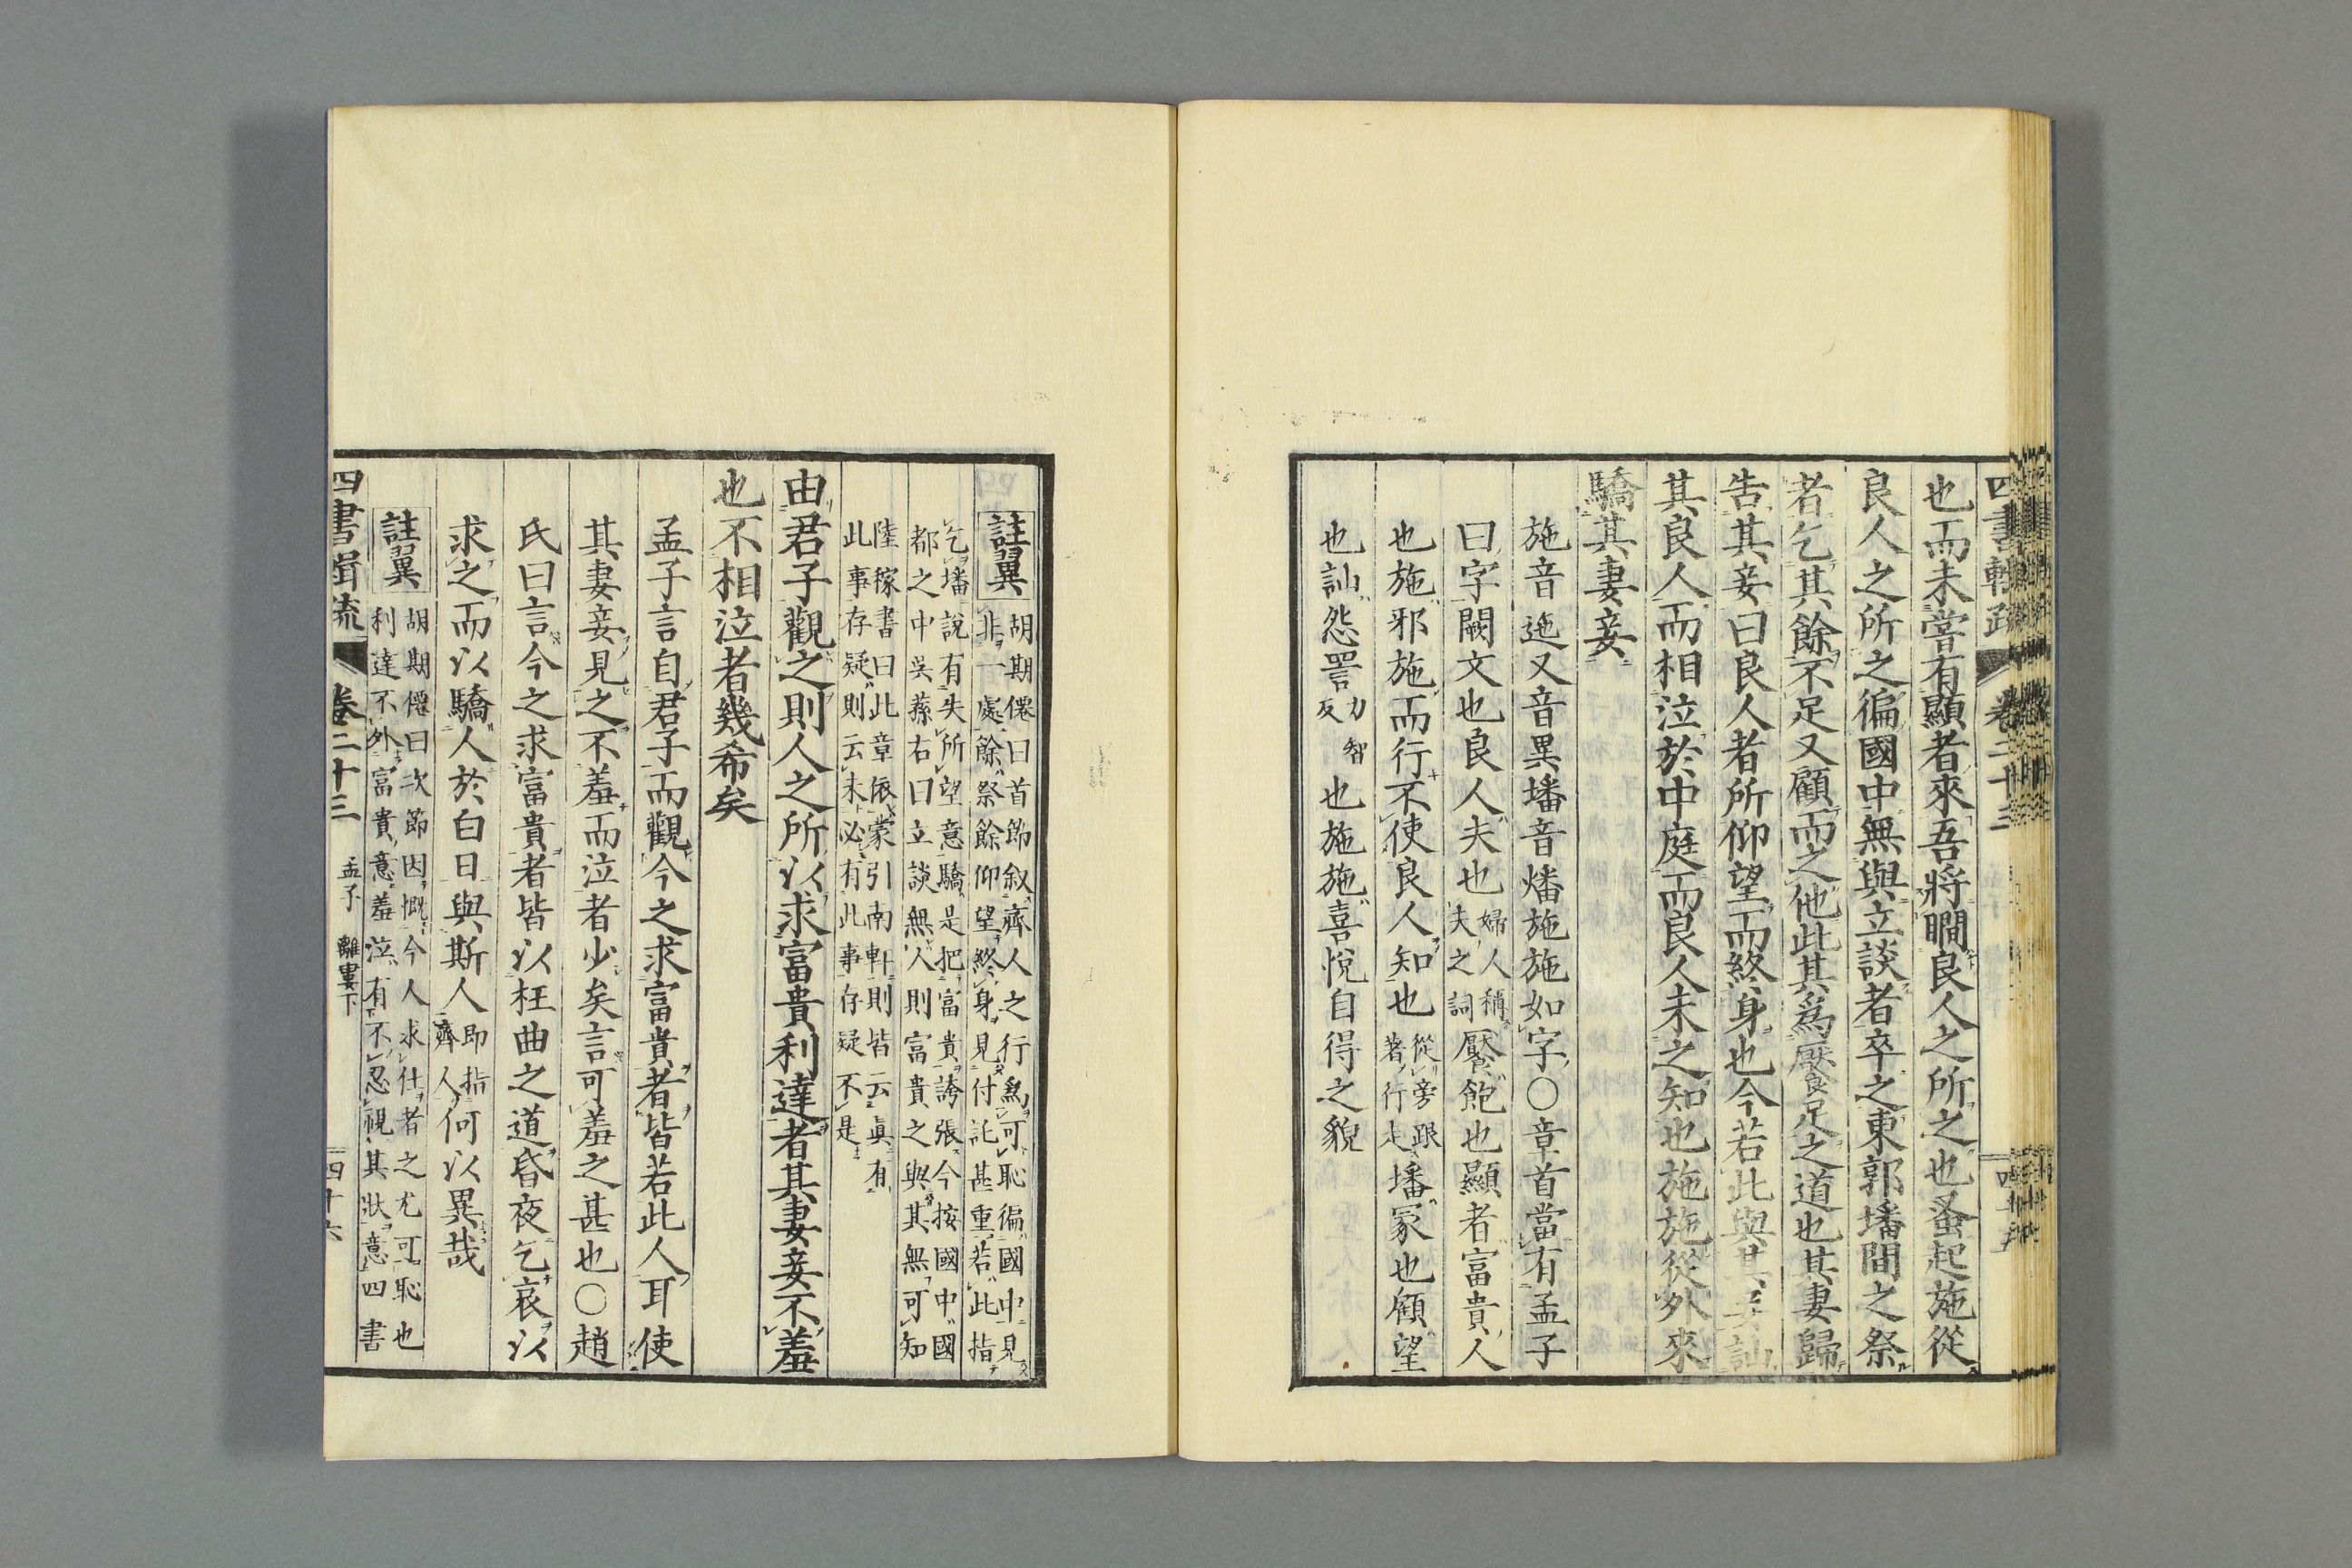 四書輯疏 卷二十三
也而未嘗有顯者來吾將瞷良人之所之也蚤起施從
良人之所之徧國中無與立談者卒之東郭墦間之祭
者乞其餘不足又顧而之他此其爲饜足之道也其妻歸
告其妾曰良人者所仰望而終身也今若此與其妾訕
其良人而相泣於中庭而良人未之知也施施從外來
驕其妻妾
施音迤又音異墦音燔施施如字〇章首當有孟子
曰字闕文也良人夫也婦人稱夫之詞饜飽也顯者富貴人
也施邪施而行不使良人知也從旁跟著行走墦冢也顧望
也訕怨詈力智反也施施喜悅自得之貌
註翼 胡期僊曰首節叙齊人之行爲可恥徧國中見
非一處餘祭餘仰望終身見付託甚重若此指
乞墦說有失所望意驕是把富貴誇張今按國中國
都之中吳蓀右曰立談無人則富貴之與其無可知
陸稼書曰此章依蒙引南軒則皆云眞有
此事存疑則云未必有此事存疑不是
由君子觀之則人之所以求富貴利達者其妻妾不羞
也不相泣者幾希矣
孟子言自君子而觀今之求富貴者皆若此人耳使
其妻妾見之不羞而泣者少矣言可羞之甚也〇趙
氏曰言今之求富貴者皆以枉曲之道昏夜乞哀以
求之而以驕人於白日與斯人即指齊人何以異哉
註翼 胡期僊曰次節因慨今人求仕者之尤可恥也
利達不外富貴意羞泣有不忍視其狀意四書
四書輯疏 卷二十三 孟子 離婁下 四十六